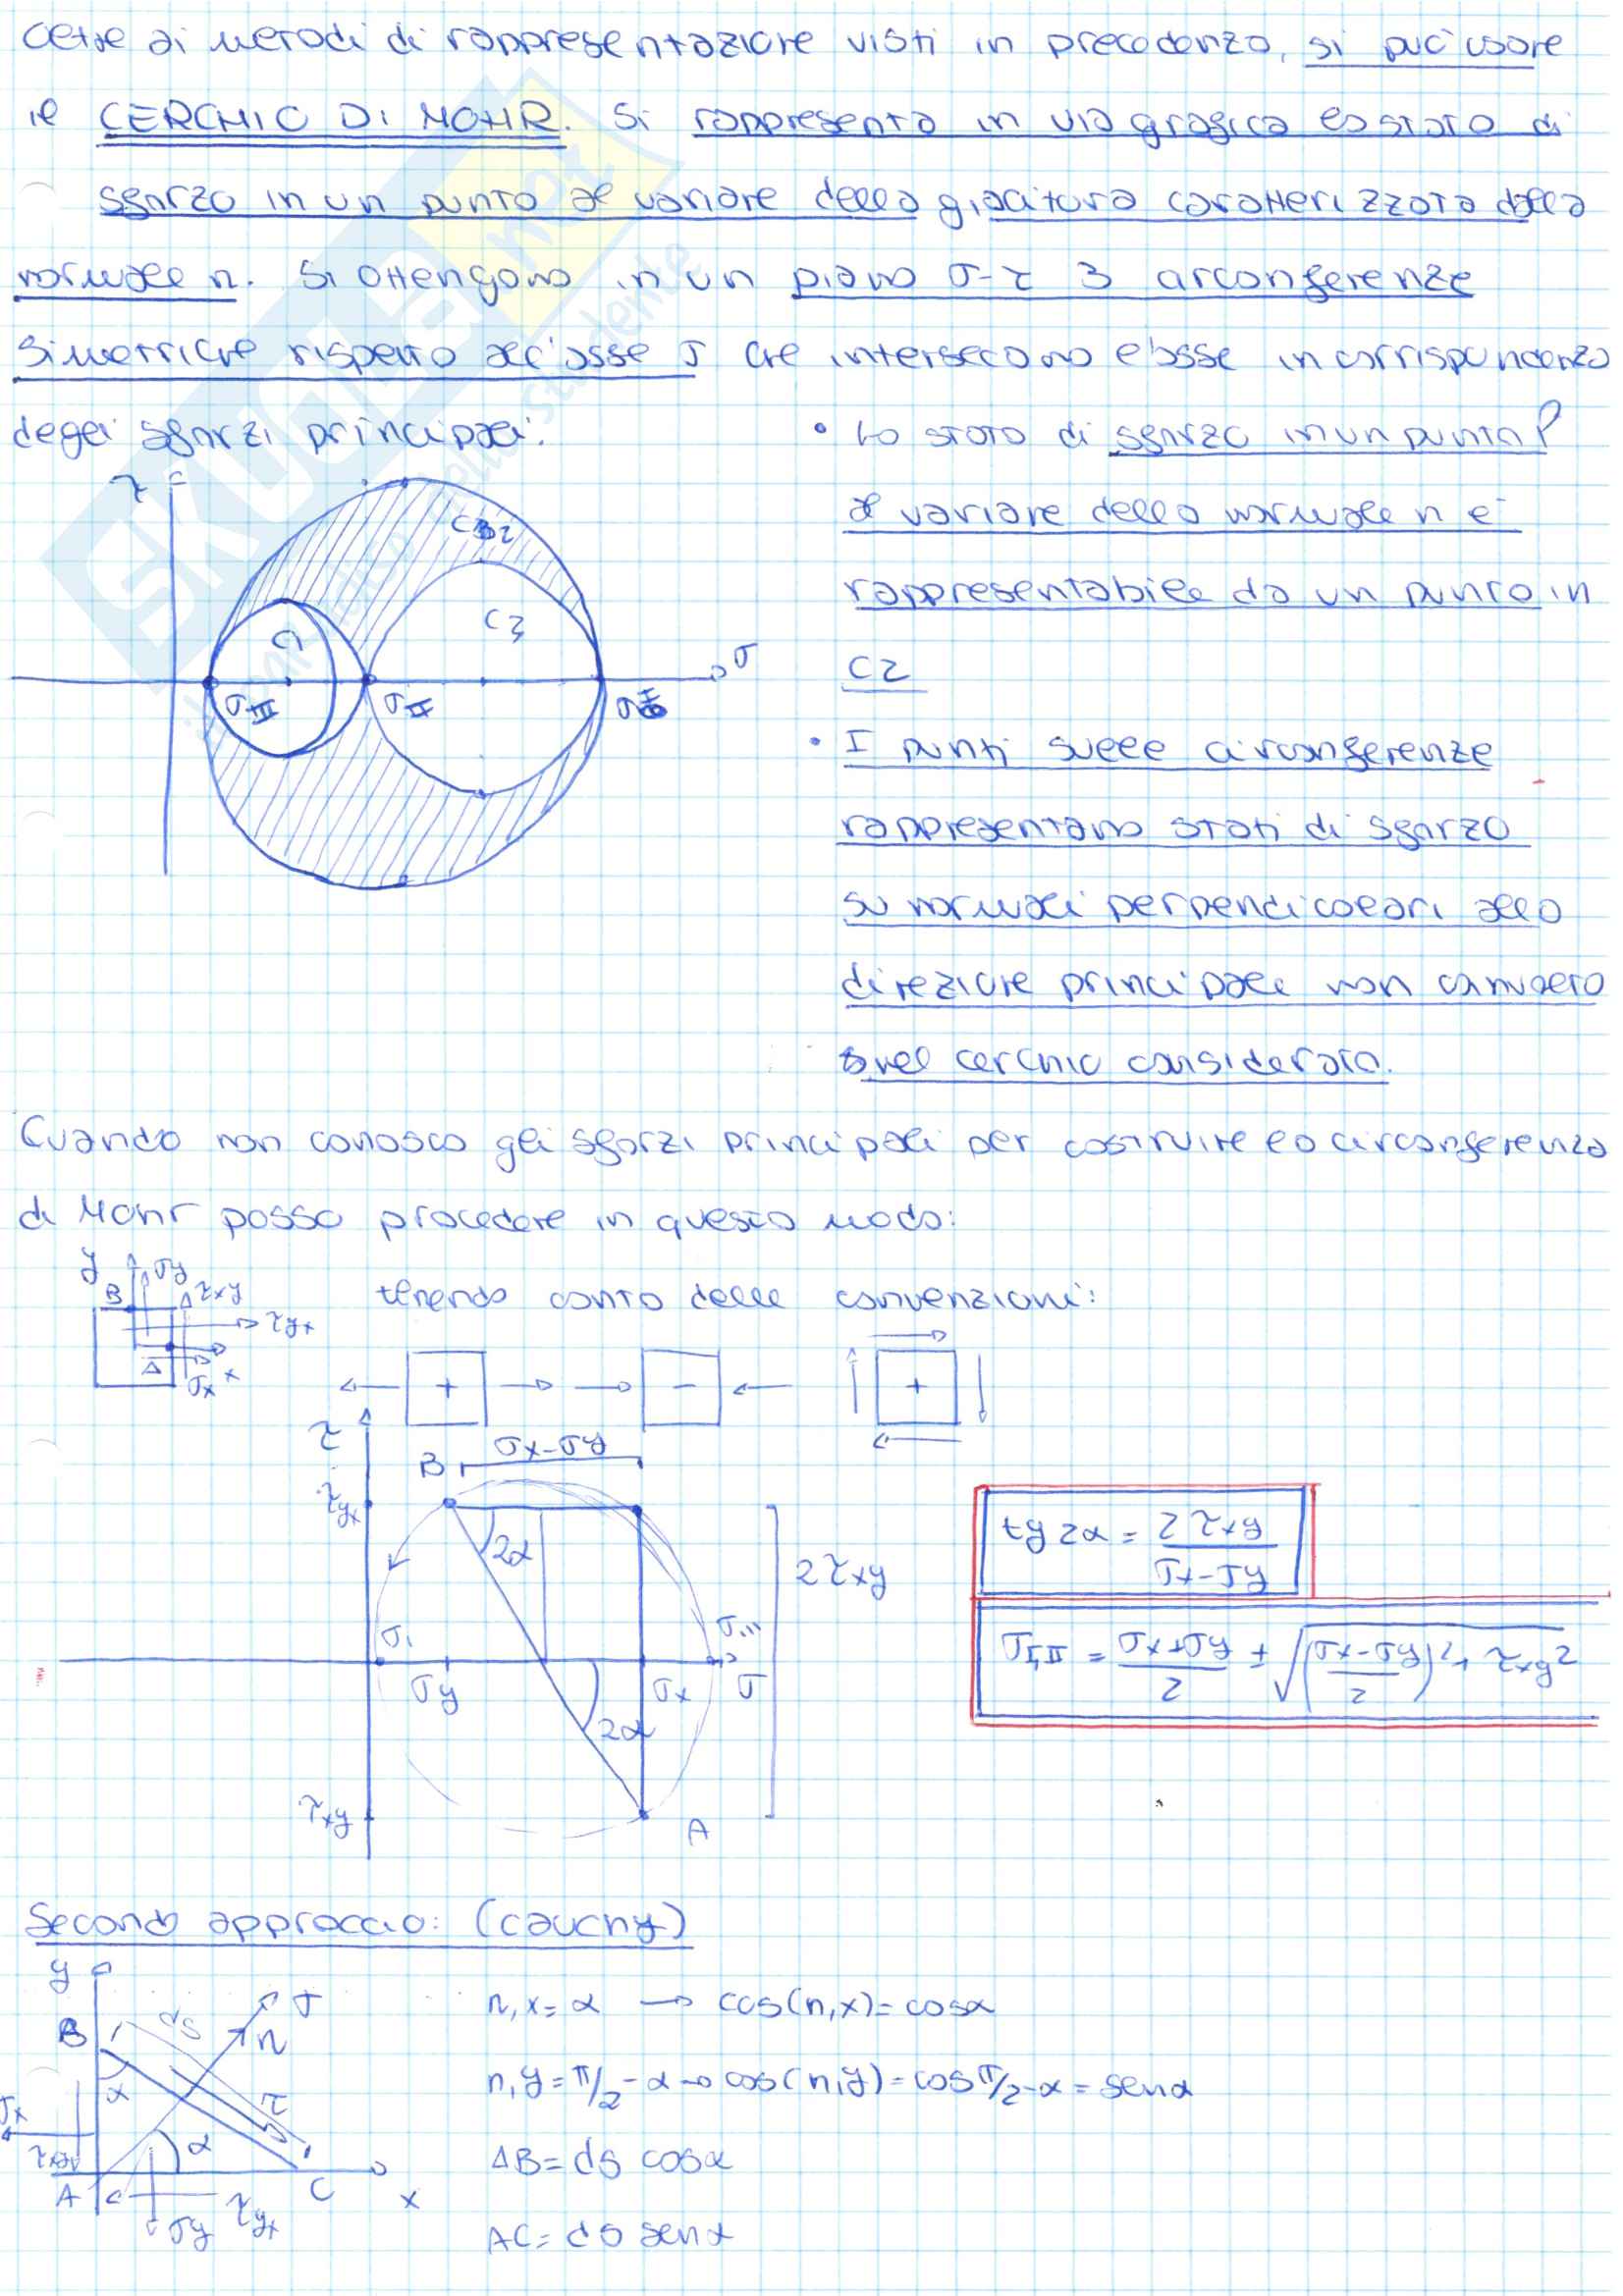 Oltre ai metodi di rappresentazione visti in precedenza, si può usare
il CERCHIO DI MOHR. Si rappresenta in via grafica lo stato di
sforzo in un punto al variare della giacitura caratterizzata dalla
normale n. Si ottengono in un piano σ-τ 3 circonferenze
simmetriche rispetto all'asse σ che intersecano l'asse in corrispondenza
degli sforzi principali:
• Lo stato di sforzo in un punto P
al variare della normale n è
rappresentabile da un punto in
C2
• I punti sulle circonferenze
rappresentano stati di sforzo
su normali perpendicolari alla
direzione principale non coinvolta
nel cerchio considerato.
τ
C2
C1
C3
σ
σIII
σII
σI
Quando non conosco gli sforzi principali per costruire la circonferenza
di Mohr posso procedere in questo modo:
y
B
σy
τxy
τyx
A
σx
x
tenendo conto delle convenzioni:
+
-
+
τ
B
σx-σy
τyx
2α
2τxy
σI
σIII
σy
σx
σ
2α
τxy
A
tg2α = 2τxy / σx-σy
σI,II = σx+σy / 2 ± √(σx-σy / 2)² + τxy²
Secondo approccio: (Cauchy)
y
σ
B
ds
n
α
τ
σx
τxy
α
A
C
x
σy
τyx
n,x = α → cos(n,x) = cosα
n,y = π/2-α → cos(n,y) = cosπ/2-α = senα
AB = ds cosα
AC = ds senα
SKUOLA.net